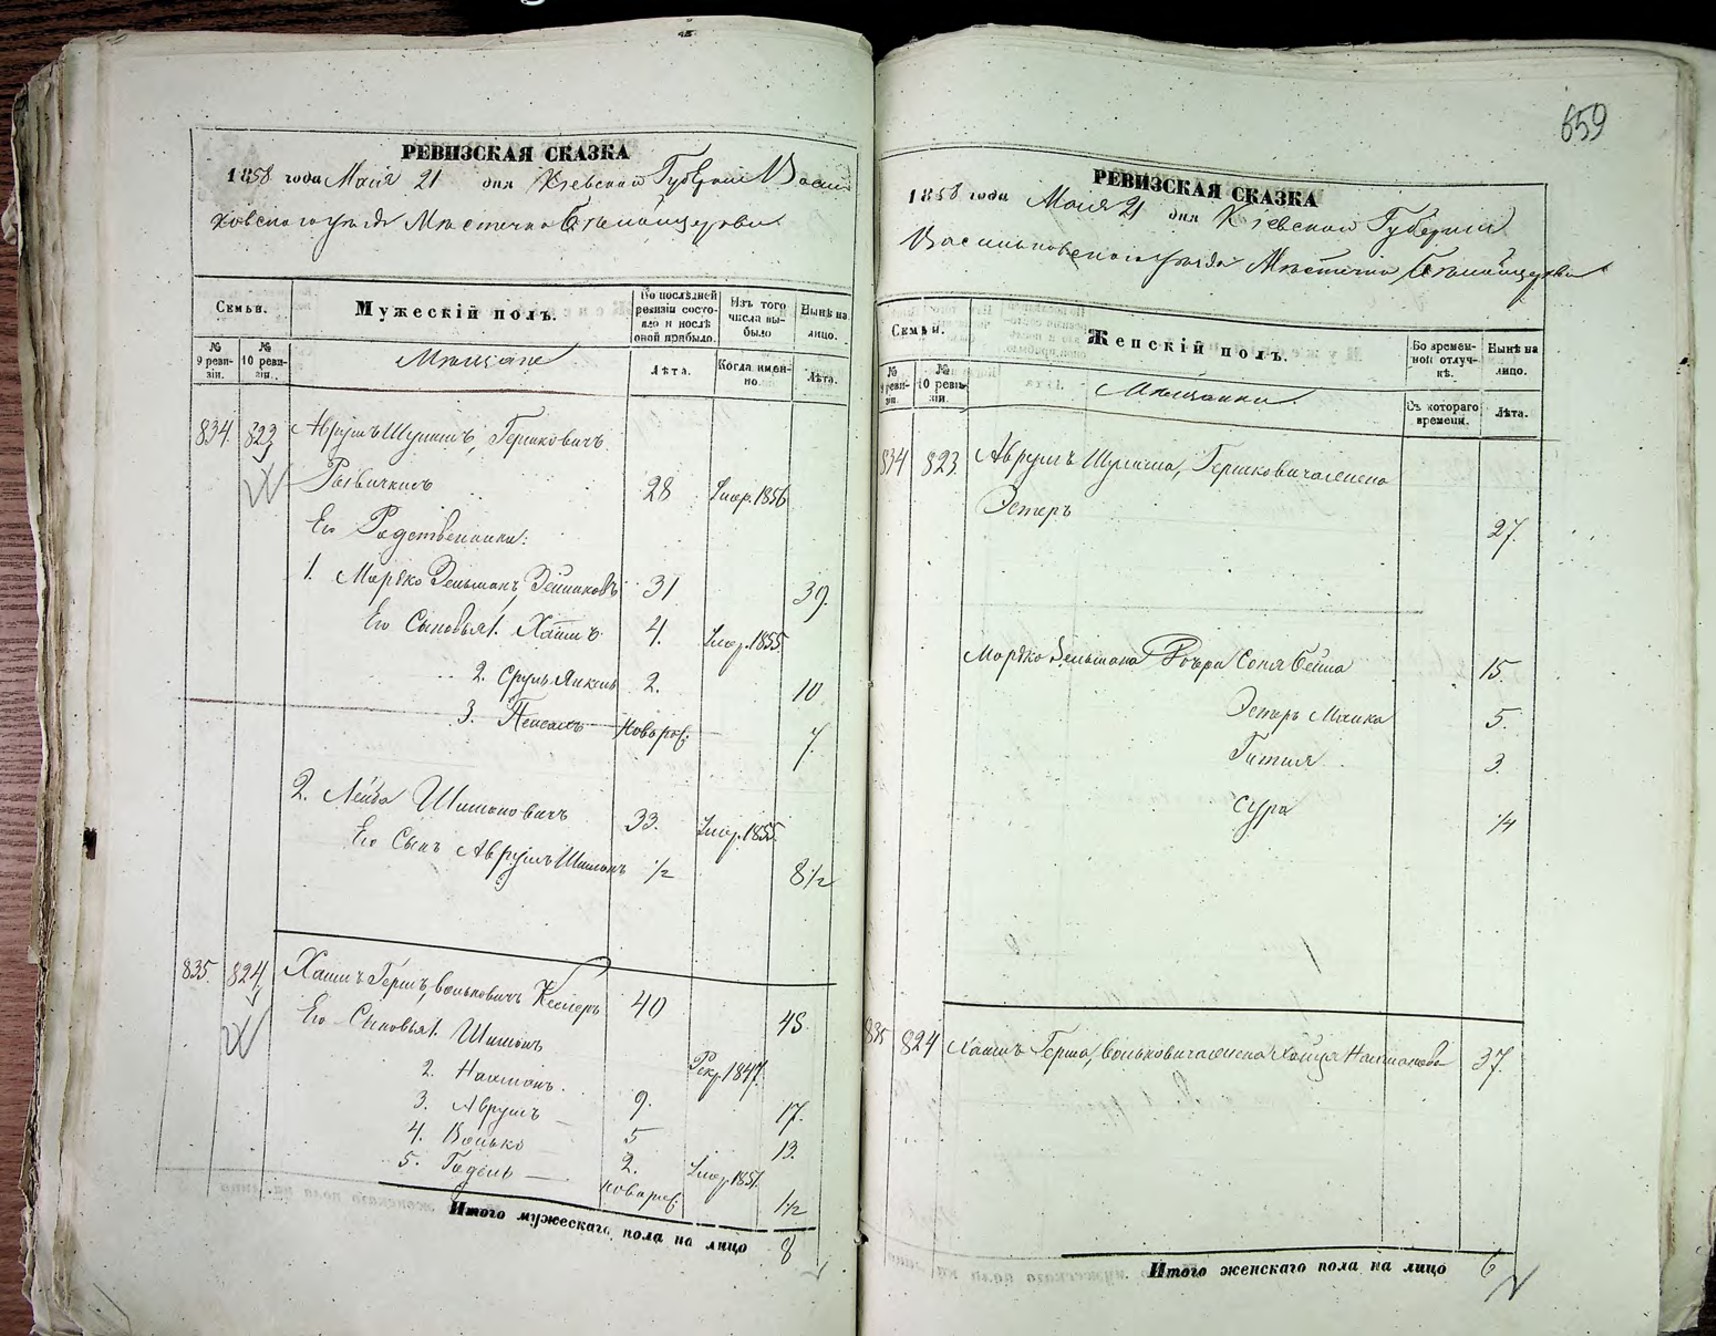 659
РЕВИЗСКАЯ СКАЗКА
1858 года Мая 21 дня Кіевской Губерніи Василь
ковскаго уѣзда Мѣстечка Бѣлойцеркви
Семьи.
Мужескій полъ.
По послѣдней ревизіи состояло и послѣ оной прибыло.
Изъ того числа выбыло
Нынѣ на лицо.
№ 9 ревизіи.
№ 10 ревизіи.
Мѣщане
Лѣта.
Когда именно.
Лѣта.
834. 823 Аврумъ Шулимъ, Гершковичъ
28 Умер. 1856
Его Родственники:
1. Мордко Зельманъ 31 39.
Его Сыновья 1. Хаимъ 4. Умер. 1855.
2. Сруль Янкель 2. 10
3. новорож. 7.
2. Лейба Шимоновичъ 33. Умер. 1855.
Его Сынъ Аврумъ Шимонъ 1/2 8 1/2
835. 824 Хаимъ Гершъ, Воньковичъ 40 48.
Его Сыновья 1. Шимонъ Рекр. 1847.
2. Нахманъ. 9. 17.
3. Аврумъ 5 13.
4. Волько 2. Умер. 1851.
5. новорож. 1 1/2
Итого мужескаго пола на лицо 8
РЕВИЗСКАЯ СКАЗКА
1858 года Мая 21 дня Кіевской Губерніи
Васильковскаго уѣзда Мѣстечка Бѣлойцеркви
Семьи.
Женскій полъ.
Во временной отлучкѣ.
Нынѣ на лицо.
№ 9 ревизіи.
№ 10 ревизіи.
Мѣщанки.
Съ котораго времени.
Лѣта.
834 823. Аврумъ Шулима, Гершковича жена
Эстеръ 27.
Мордко Зельмана Дочери Соня Бейла 15.
Эстеръ Малка 5.
Гитля 3.
Сура 1/4
835 824 Хаимъ Герша, Воньковича жена Хайца Нахманова 37.
Итого женскаго пола на лицо 6